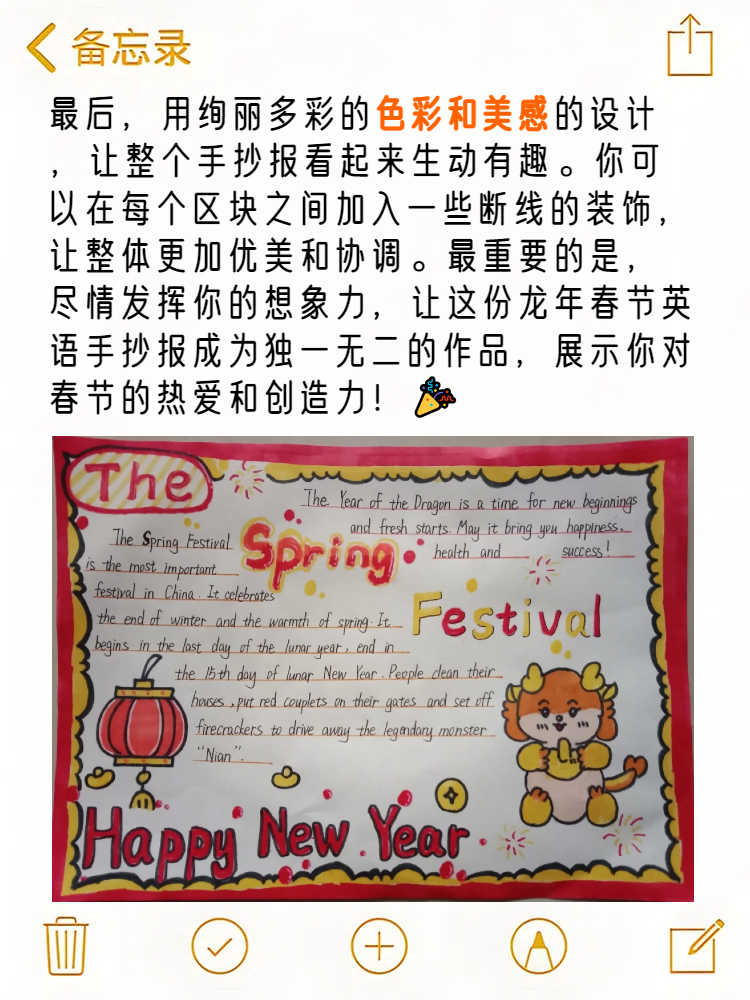 备忘录
最后，用绚丽多彩的色彩和美感的设计
，让整个手抄报看起来生动有趣。你可
以在每个区块之间加入一些断线的装饰，
让整体更加优美和协调。最重要的是，
尽情发挥你的想象力，让这份龙年春节英
语手抄报成为独一无二的作品，展示你对
春节的热爱和创造力！
The
Spring
Festival
The Year of the Dragon is a time for new beginnings
and fresh starts. May it bring you happiness,
health and success!
The Spring Festival
is the most important
festival in China. It celebrates
the end of winter and the warmth of spring. It
begins in the last day of the lunar year, end in
the 15th day of lunar New Year. People clean their
houses, put red couplets on their gates and set off
firecrackers to drive away the legendary monster
“Nian”.
Happy New Year